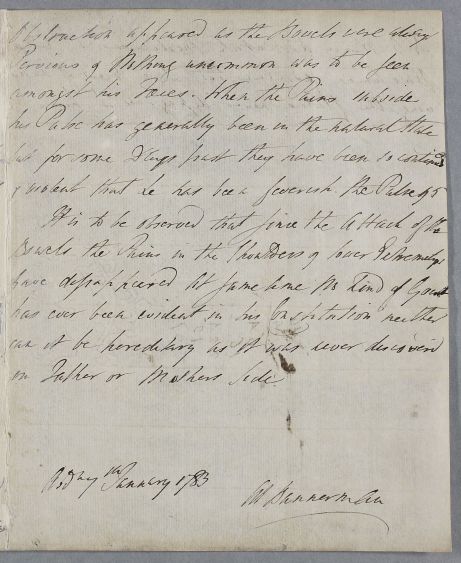 Obstruction appeared as the Bowels were always
Pervious & Nothing uncommon was to be seen
amongst his Faeces. When the Pains subside
his Pulse has generally been in the natural State
but for some Days past they have been so continued
& violent that he has been feverish the Pulse 95
It is to be observed that since the Attack of the
Bowels the Pains in the Shoulders & lower Extremetys
have dissappeared At same time no Kind of Gout
has ever been evident in his Constitution neither
can it be hereditary as it was never discovered
on Father or Mothers Side.
January 1783
Bannerman